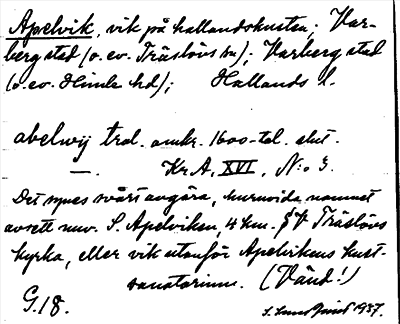 Apelvik, vik på hallandskusten; Var-
berg stad (o. ev. Träslövs sn); Varberg stad
(o. ev. Himle hd); Hallands l.
abelwij trol. omkr. 1600-tal. slut.
—. Kr.A, XVI, N:o 3.
Det synes svårt avgöra, huruvida namnet
avsett nuv. S. Apelviken, 4 km. SV Träslövs
kyrka, eller vik utanför Apelvikens kust-
sanatorium. (Vänd!)
G.18. 1937.